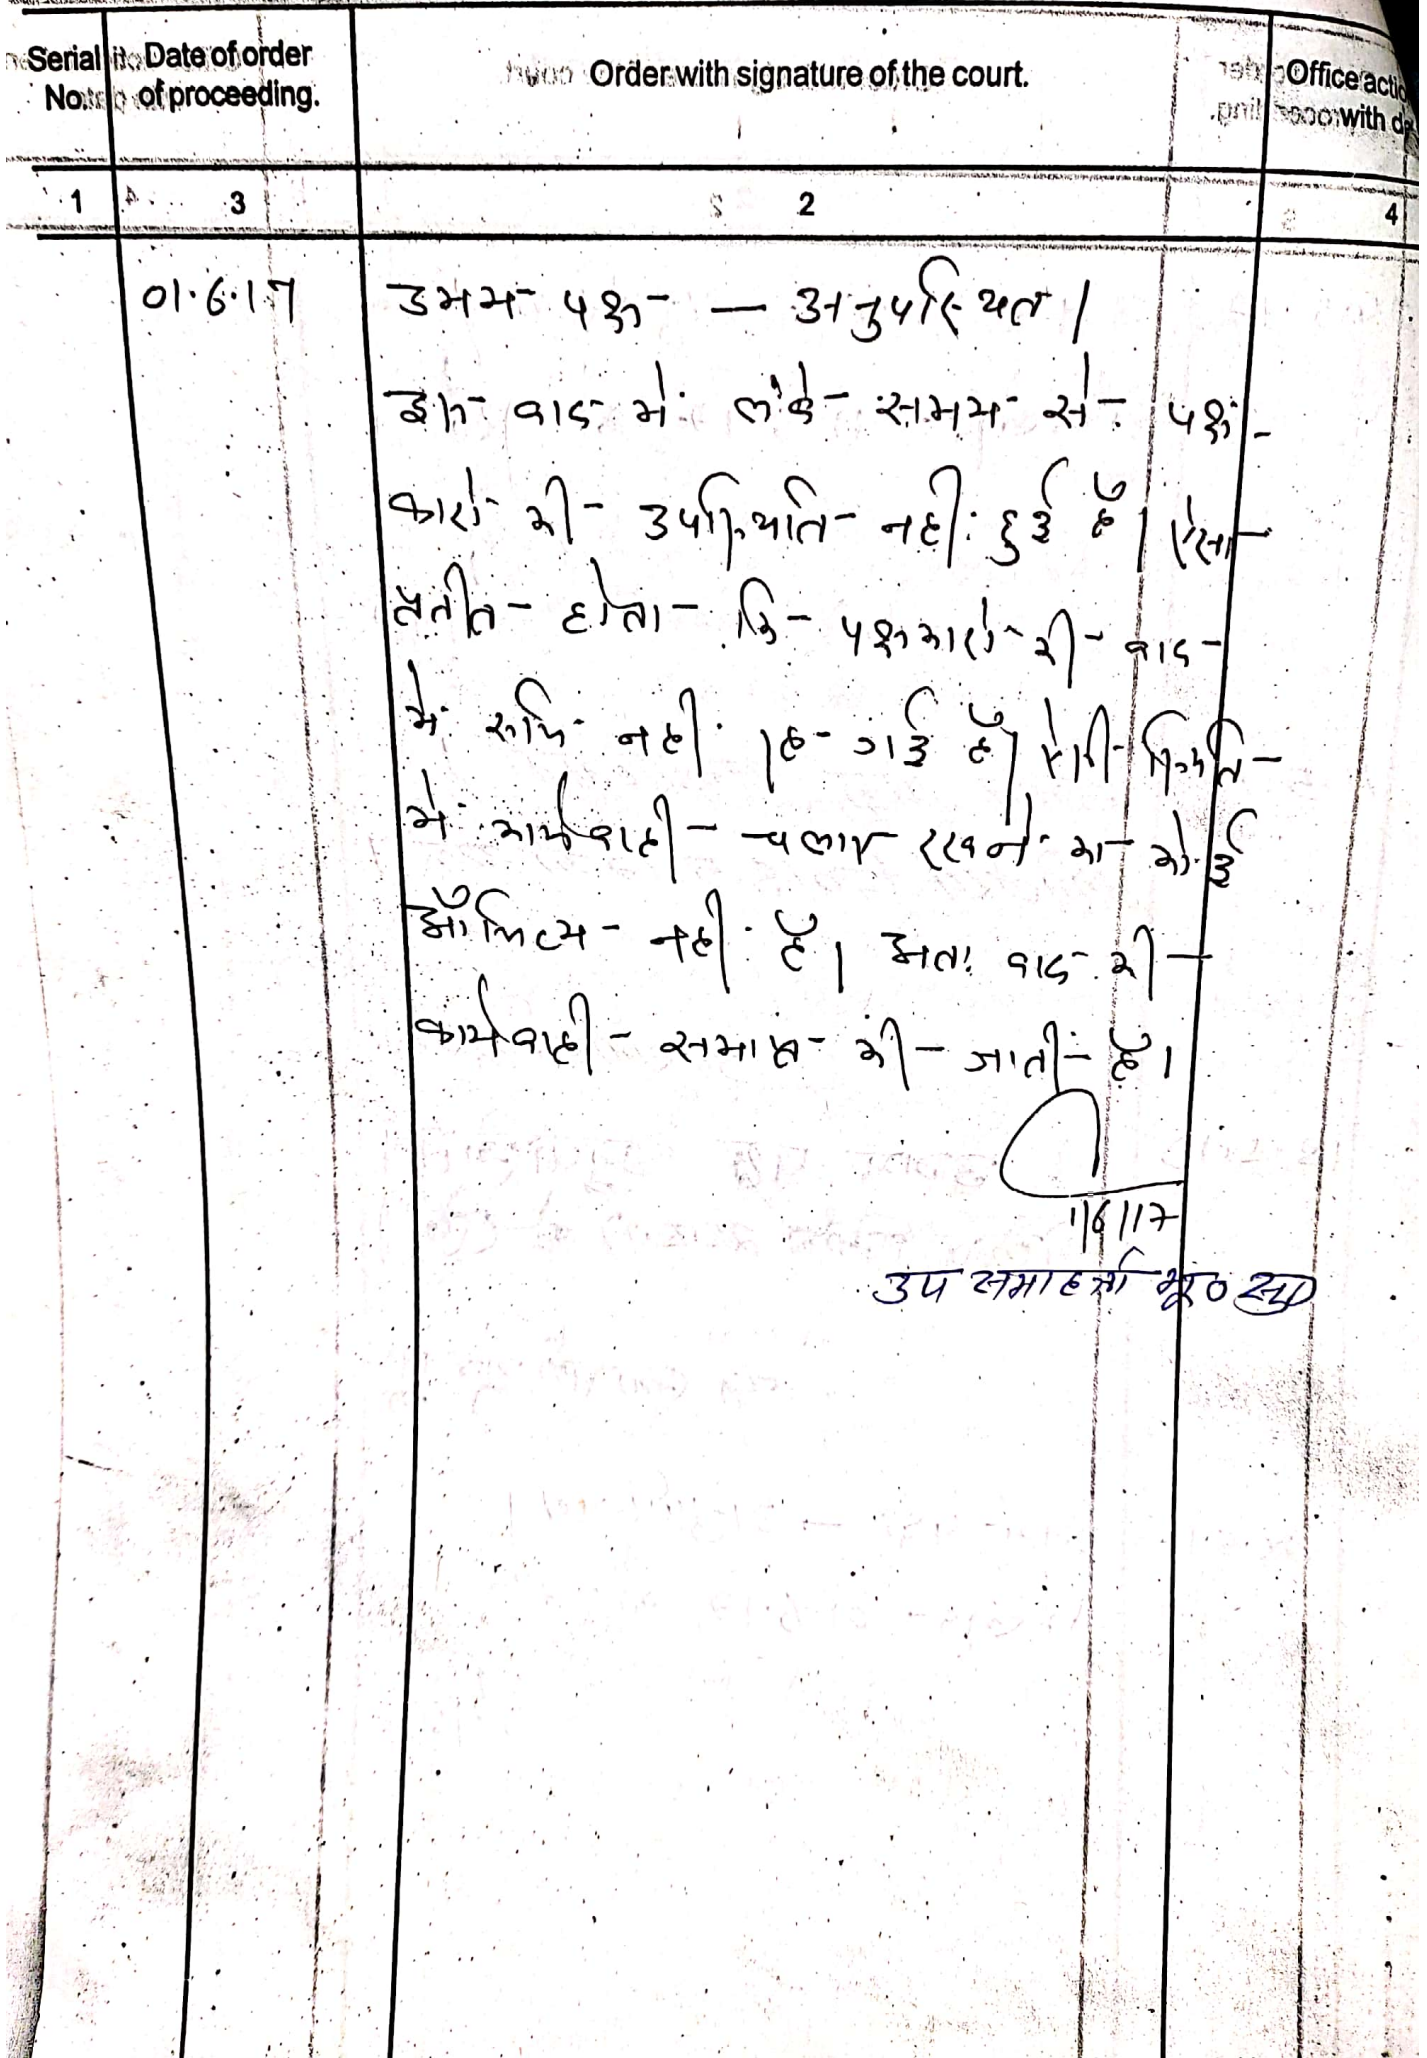 Serial Date of order Order with signature of the court. Office
No. of proceeding. with
1 3 2 4
01.6.17 उभय पक्ष — अनुपस्थित।
इस वाद में लंबे समय से पक्ष-
कारों की उपस्थिति नहीं हुई है। ऐसा
प्रतीत होता कि पक्षकारों की वाद
में रूचि नहीं रह गई है। ऐसी स्थिति
में कार्यवाही चलाए रखने का कोई
औचित्य नहीं है। अतः वाद की
कार्यवाही समाप्त की जाती है।
1/6/17
उप समाहर्त्ता भू०